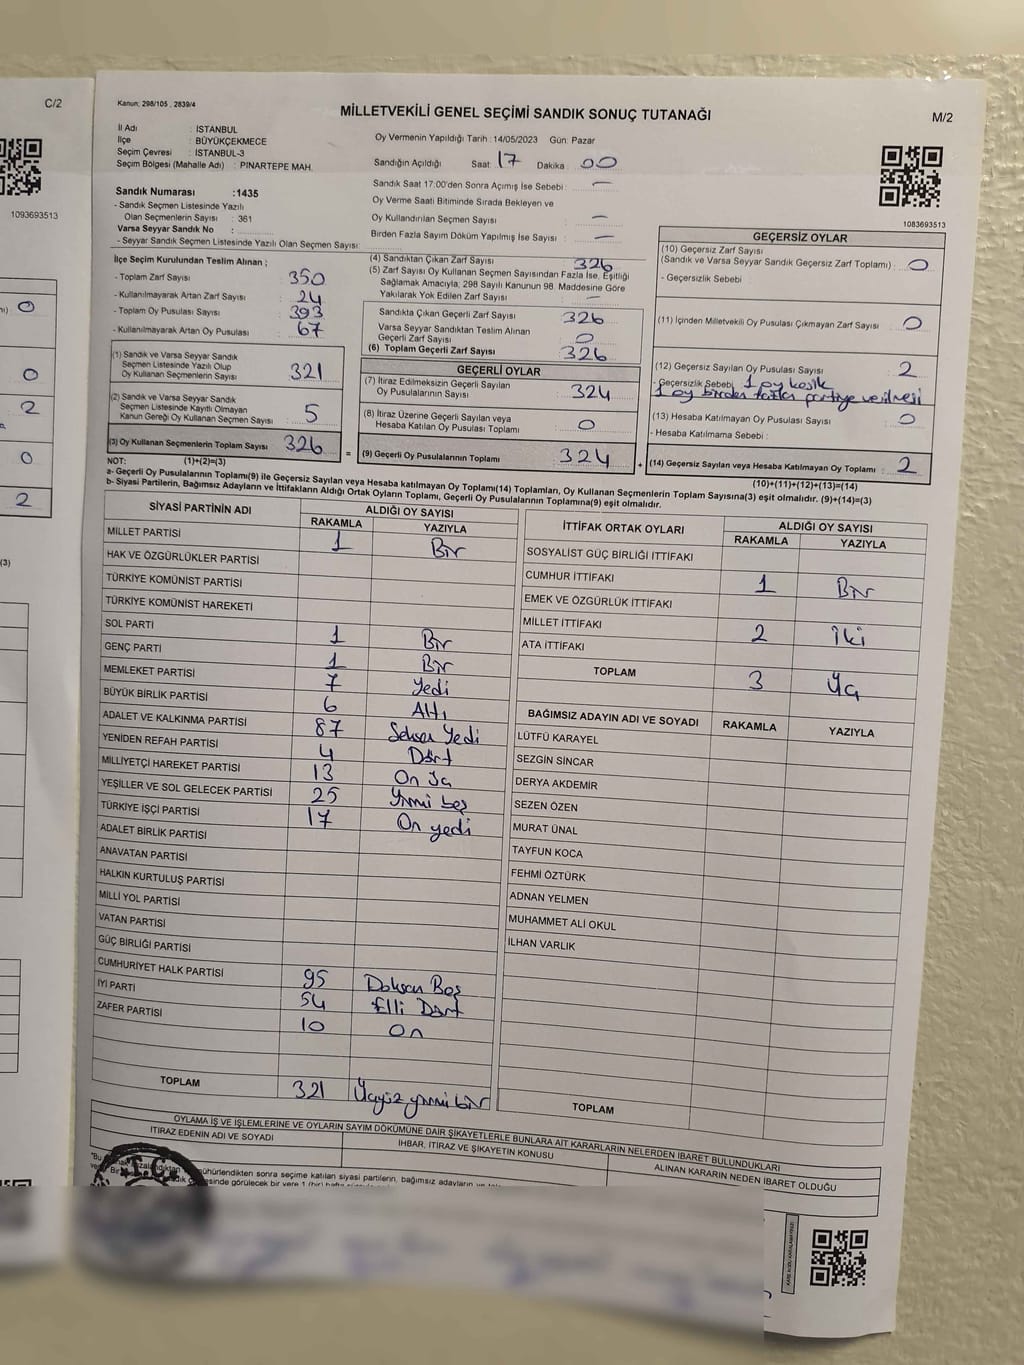 C/2
1093693513
0
0
2
0
2
Kanun: 298/105 , 2839/4
MİLLETVEKİLİ GENEL SEÇİMİ SANDIK SONUÇ TUTANAĞI
M/2
İl Adı : İSTANBUL
İlçe : BÜYÜKÇEKMECE
Seçim Çevresi : İSTANBUL-3
Seçim Bölgesi (Mahalle Adı) : PINARTEPE MAH.
Oy Vermenin Yapıldığı Tarih :14/05/2023 Gün: Pazar
Sandığın Açıldığı Saat: 17 Dakika : 00
Sandık Saat 17:00'den Sonra Açımış İse Sebebi : —
Oy Verme Saati Bitiminde Sırada Bekleyen ve
Oy Kullandırılan Seçmen Sayısı : —
Birden Fazla Sayım Döküm Yapılmış İse Sayısı : —
1083693513
Sandık Numarası :1435
- Sandık Seçmen Listesinde Yazılı
Olan Seçmenlerin Sayısı : 361
Varsa Seyyar Sandık No :
- Seyyar Sandık Seçmen Listesinde Yazılı Olan Seçmen Sayısı:
İlçe Seçim Kurulundan Teslim Alınan ;
- Toplam Zarf Sayısı : 350
- Kullanılmayarak Artan Zarf Sayısı : 24
- Toplam Oy Pusulası Sayısı : 393
- Kullanılmayarak Artan Oy Pusulası : 67
(1) Sandık ve Varsa Seyyar Sandık
Seçmen Listesinde Yazılı Olup
Oy Kullanan Seçmenlerin Sayısı : 321
(2) Sandık ve Varsa Seyyar Sandık
Seçmen Listesinde Kayıtlı Olmayan
Kanun Gereği Oy Kullanan Seçmen Sayısı : 5
(3) Oy Kullanan Seçmenlerin Toplam Sayısı : 326
(4) Sandıktan Çıkan Zarf Sayısı : 326
(5) Zarf Sayısı Oy Kullanan Seçmen Sayısından Fazla İse, Eşitliği
Sağlamak Amacıyla; 298 Sayılı Kanunun 98. Maddesine Göre
Yakılarak Yok Edilen Zarf Sayısı : —
Sandıkta Çıkan Geçerli Zarf Sayısı : 326
Varsa Seyyar Sandıktan Teslim Alınan
Geçerli Zarf Sayısı : 0
(6) Toplam Geçerli Zarf Sayısı : 326
GEÇERLİ OYLAR
(7) İtiraz Edilmeksizin Geçerli Sayılan
Oy Pusulasının Sayısı : 324
(8) İtiraz Üzerine Geçerli Sayılan veya
Hesaba Katılan Oy Pusulası Toplamı : 0
= (9) Geçerli Oy Pusulalarının Toplamı : 324
GEÇERSİZ OYLAR
(10) Geçersiz Zarf Sayısı
(Sandık ve Varsa Seyyar Sandık Geçersiz Zarf Toplamı) : 0
- Geçersizlik Sebebi :
(11) İçinden Milletvekili Oy Pusulası Çıkmayan Zarf Sayısı : 0
(12) Geçersiz Sayılan Oy Pusulası Sayısı : 2
- Geçersizlik Sebebi : 1 oy kesik
1 oy birden fazla partiye verilmesi
(13) Hesaba Katılmayan Oy Pusulası Sayısı : 0
- Hesaba Katılmama Sebebi :
+ (14) Geçersiz Sayılan veya Hesaba Katılmayan Oy Toplamı : 2
NOT: (1)+(2)=(3)
(10)+(11)+(12)+(13)=(14)
a- Geçerli Oy Pusulalarının Toplamı(9) ile Geçersiz Sayılan veya Hesaba katılmayan Oy Toplamı(14) Toplamları, Oy Kullanan Seçmenlerin Toplam Sayısına(3) eşit olmalıdır. (9)+(14)=(3)
b- Siyasi Partilerin, Bağımsız Adayların ve İttifakların Aldığı Ortak Oyların Toplamı, Geçerli Oy Pusulalarının Toplamına(9) eşit olmalıdır.
SİYASİ PARTİNİN ADI ALDIĞI OY SAYISI
RAKAMLA YAZIYLA
MİLLET PARTİSİ 1 Bir
HAK VE ÖZGÜRLÜKLER PARTİSİ
TÜRKİYE KOMÜNİST PARTİSİ
TÜRKİYE KOMÜNİST HAREKETİ
SOL PARTİ 1 Bir
GENÇ PARTİ 1 Bir
MEMLEKET PARTİSİ 7 Yedi
BÜYÜK BİRLİK PARTİSİ 6 Altı
ADALET VE KALKINMA PARTİSİ 87 Seksen Yedi
YENİDEN REFAH PARTİSİ 4 Dört
MİLLİYETÇİ HAREKET PARTİSİ 13 On Üç
YEŞİLLER VE SOL GELECEK PARTİSİ 25 Yirmi beş
TÜRKİYE İŞÇİ PARTİSİ 17 On yedi
ADALET BİRLİK PARTİSİ
ANAVATAN PARTİSİ
HALKIN KURTULUŞ PARTİSİ
MİLLİ YOL PARTİSİ
VATAN PARTİSİ
GÜÇ BİRLİĞİ PARTİSİ
CUMHURİYET HALK PARTİSİ 95 Doksan Beş
İYİ PARTİ 54 Elli Dört
ZAFER PARTİSİ 10 On
TOPLAM 321 Üçyüz yirmi bir
İTTİFAK ORTAK OYLARI ALDIĞI OY SAYISI
RAKAMLA YAZIYLA
SOSYALİST GÜÇ BİRLİĞİ İTTİFAKI
CUMHUR İTTİFAKI 1 Bir
EMEK VE ÖZGÜRLÜK İTTİFAKI
MİLLET İTTİFAKI 2 İki
ATA İTTİFAKI
TOPLAM 3 Üç
BAĞIMSIZ ADAYIN ADI VE SOYADI RAKAMLA YAZIYLA
LÜTFÜ KARAYEL
SEZGİN SİNCAR
DERYA AKDEMİR
SEZEN ÖZEN
MURAT ÜNAL
TAYFUN KOCA
FEHMİ ÖZTÜRK
ADNAN YELMEN
MUHAMMET ALİ OKUL
İLHAN VARLIK
TOPLAM
OYLAMA İŞ VE İŞLEMLERİNE VE OYLARIN SAYIM DÖKÜMÜNE DAİR ŞİKAYETLERLE BUNLARA AİT KARARLARIN NELERDEN İBARET BULUNDUKLARI
İTİRAZ EDENİN ADI VE SOYADI İHBAR, İTİRAZ VE ŞİKAYETİN KONUSU ALINAN KARARIN NEDEN İBARET OLDUĞU
T.C.
mühürlendikten sonra seçime katılan siyasi partilerin, bağımsız adayların